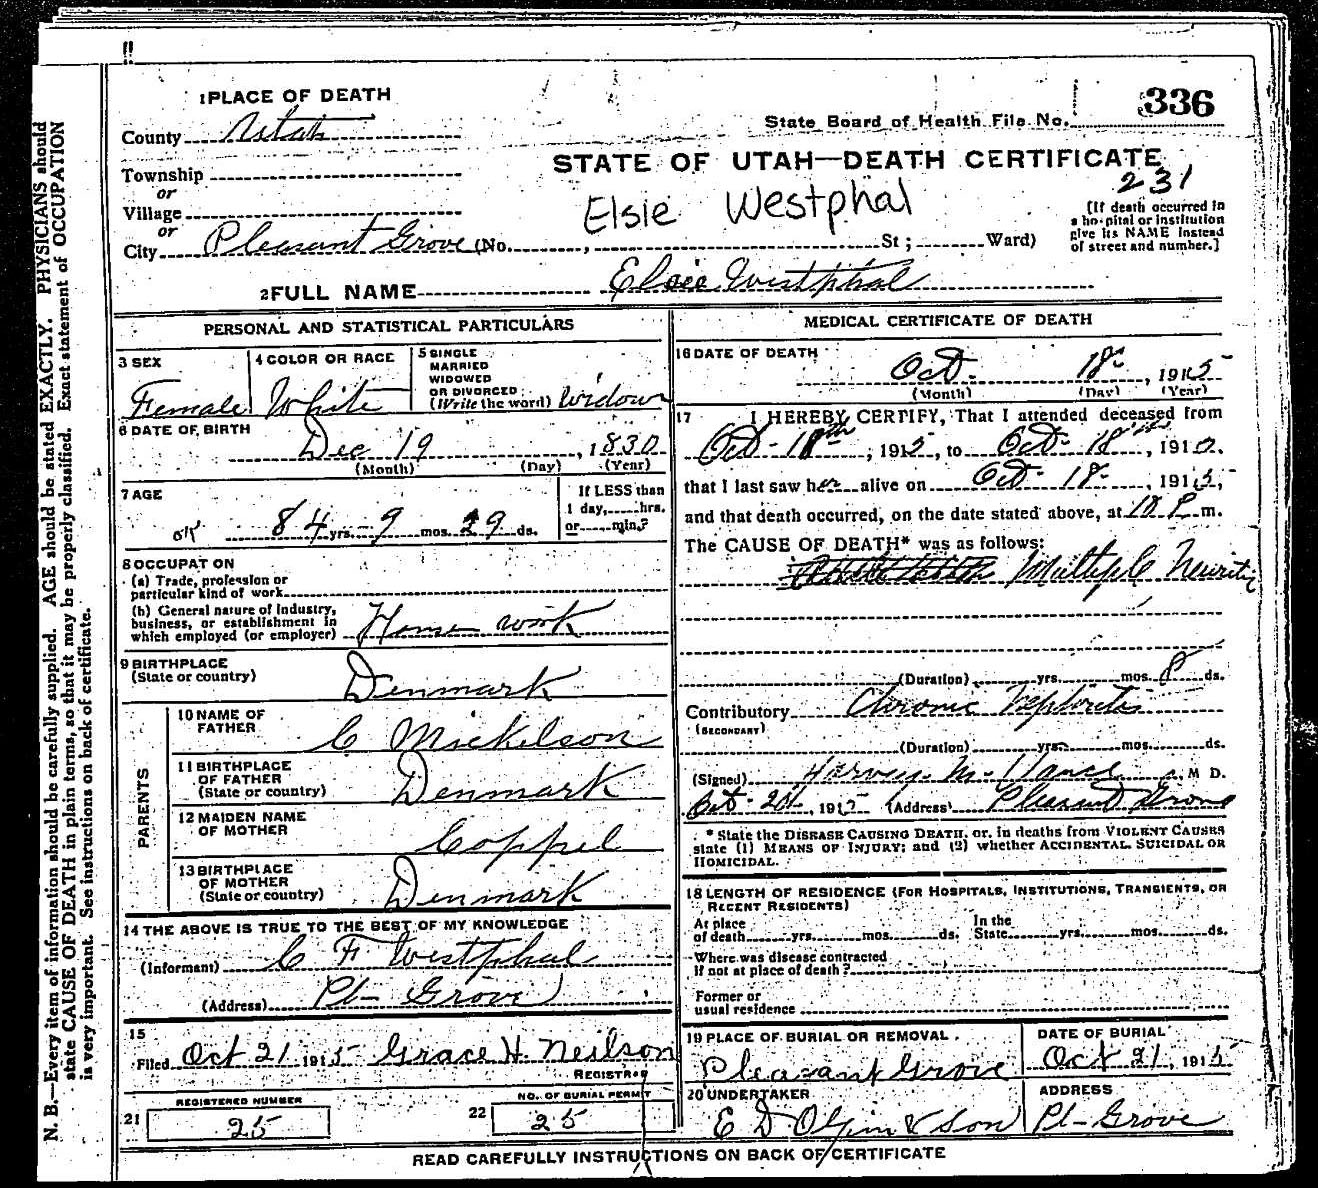 1 PLACE OF DEATH
County Utah
Township
or
Village
or
City Pleasant Grove (No. , St; Ward)
State Board of Health File No. 336
STATE OF UTAH—DEATH CERTIFICATE
231
Elsie Westphal
[If death occurred in
a hospital or institution
give its NAME instead
of street and number.]
2 FULL NAME Elsie Westphal
PERSONAL AND STATISTICAL PARTICULARS
3 SEX
Female
4 COLOR OR RACE
White
5 SINGLE
MARRIED
WIDOWED
OR DIVORCED
(Write the word) Widow
6 DATE OF BIRTH
Dec 19, 1830
(Month) (Day) (Year)
7 AGE
84 yrs. 9 mos. 29 ds.
If LESS than
1 day, hrs.
or min.?
8 OCCUPATION
(a) Trade, profession or
particular kind of work
(b) General nature of Industry,
business, or establishment in
which employed (or employer) Home work
9 BIRTHPLACE
(State or country) Denmark
PARENTS
10 NAME OF
FATHER C Mickelson
11 BIRTHPLACE
OF FATHER
(State or country) Denmark
12 MAIDEN NAME
OF MOTHER Coppel
13 BIRTHPLACE
OF MOTHER
(State or country) Denmark
14 THE ABOVE IS TRUE TO THE BEST OF MY KNOWLEDGE
(Informant) C F Westphal
(Address) Pl- Grove
15
Filed Oct 21 1915 Grace H. Neilson
REGISTRAR
21
REGISTERED NUMBER
25
22
NO. OF BURIAL PERMIT
25
MEDICAL CERTIFICATE OF DEATH
16 DATE OF DEATH
Oct. 18, 1915
(Month) (Day) (Year)
17 I HEREBY CERTIFY, That I attended deceased from
Oct- 18th, 1915, to Oct- 18th, 191
that I last saw her alive on Oct- 18-, 1915,
and that death occurred, on the date stated above, at P m.
The CAUSE OF DEATH* was as follows:
Multiple Neuritis
(Duration) yrs. mos. 8 ds.
Contributory Chronic Nephritis
(SECONDARY)
(Duration) yrs. mos. ds.
(Signed) Harvey M. , M D.
Oct- 20, 1915 (Address) Pleasant Grove
* State the DISEASE CAUSING DEATH, or, in deaths from VIOLENT CAUSES
state (1) MEANS OF INJURY; and (2) whether ACCIDENTAL, SUICIDAL OR
HOMICIDAL.
18 LENGTH OF RESIDENCE (FOR HOSPITALS, INSTITUTIONS, TRANSIENTS, OR
RECENT RESIDENTS)
At place
of death yrs. mos. ds.
In the
State yrs. mos. ds.
Where was disease contracted
if not at place of death?
Former or
usual residence
19 PLACE OF BURIAL OR REMOVAL.
Pleasant Grove
DATE OF BURIAL
Oct 21, 1915
20 UNDERTAKER
E D Olpin & Son
ADDRESS
Pl- Grove
READ CAREFULLY INSTRUCTIONS ON BACK OF CERTIFICATE
N. B.—Every item of information should be carefully supplied. AGE should be stated EXACTLY. PHYSICIANS should
state CAUSE OF DEATH in plain terms, so that it may be properly classified. Exact statement of OCCUPATION
is very important. See instructions on back of certificate.